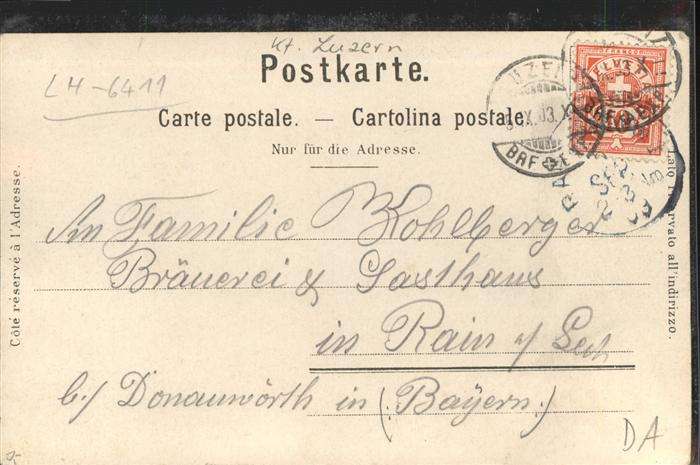 Kt. Luzern
Postkarte.
LH-6411
Carte postale. — Cartolina postale
Nur für die Adresse.
Côté réservé à l'Adresse.
HELVETIA
FRANCO
10
LUZERN
X.03.X
BRF. EXP.
RAIN
SEP
03
An Familie Kohlberger
Bräuerei & Gasthaus
in Rain a/ Lech
b./ Donauwörth in (Bayern.)
Lato riservato all'indirizzo.
DA